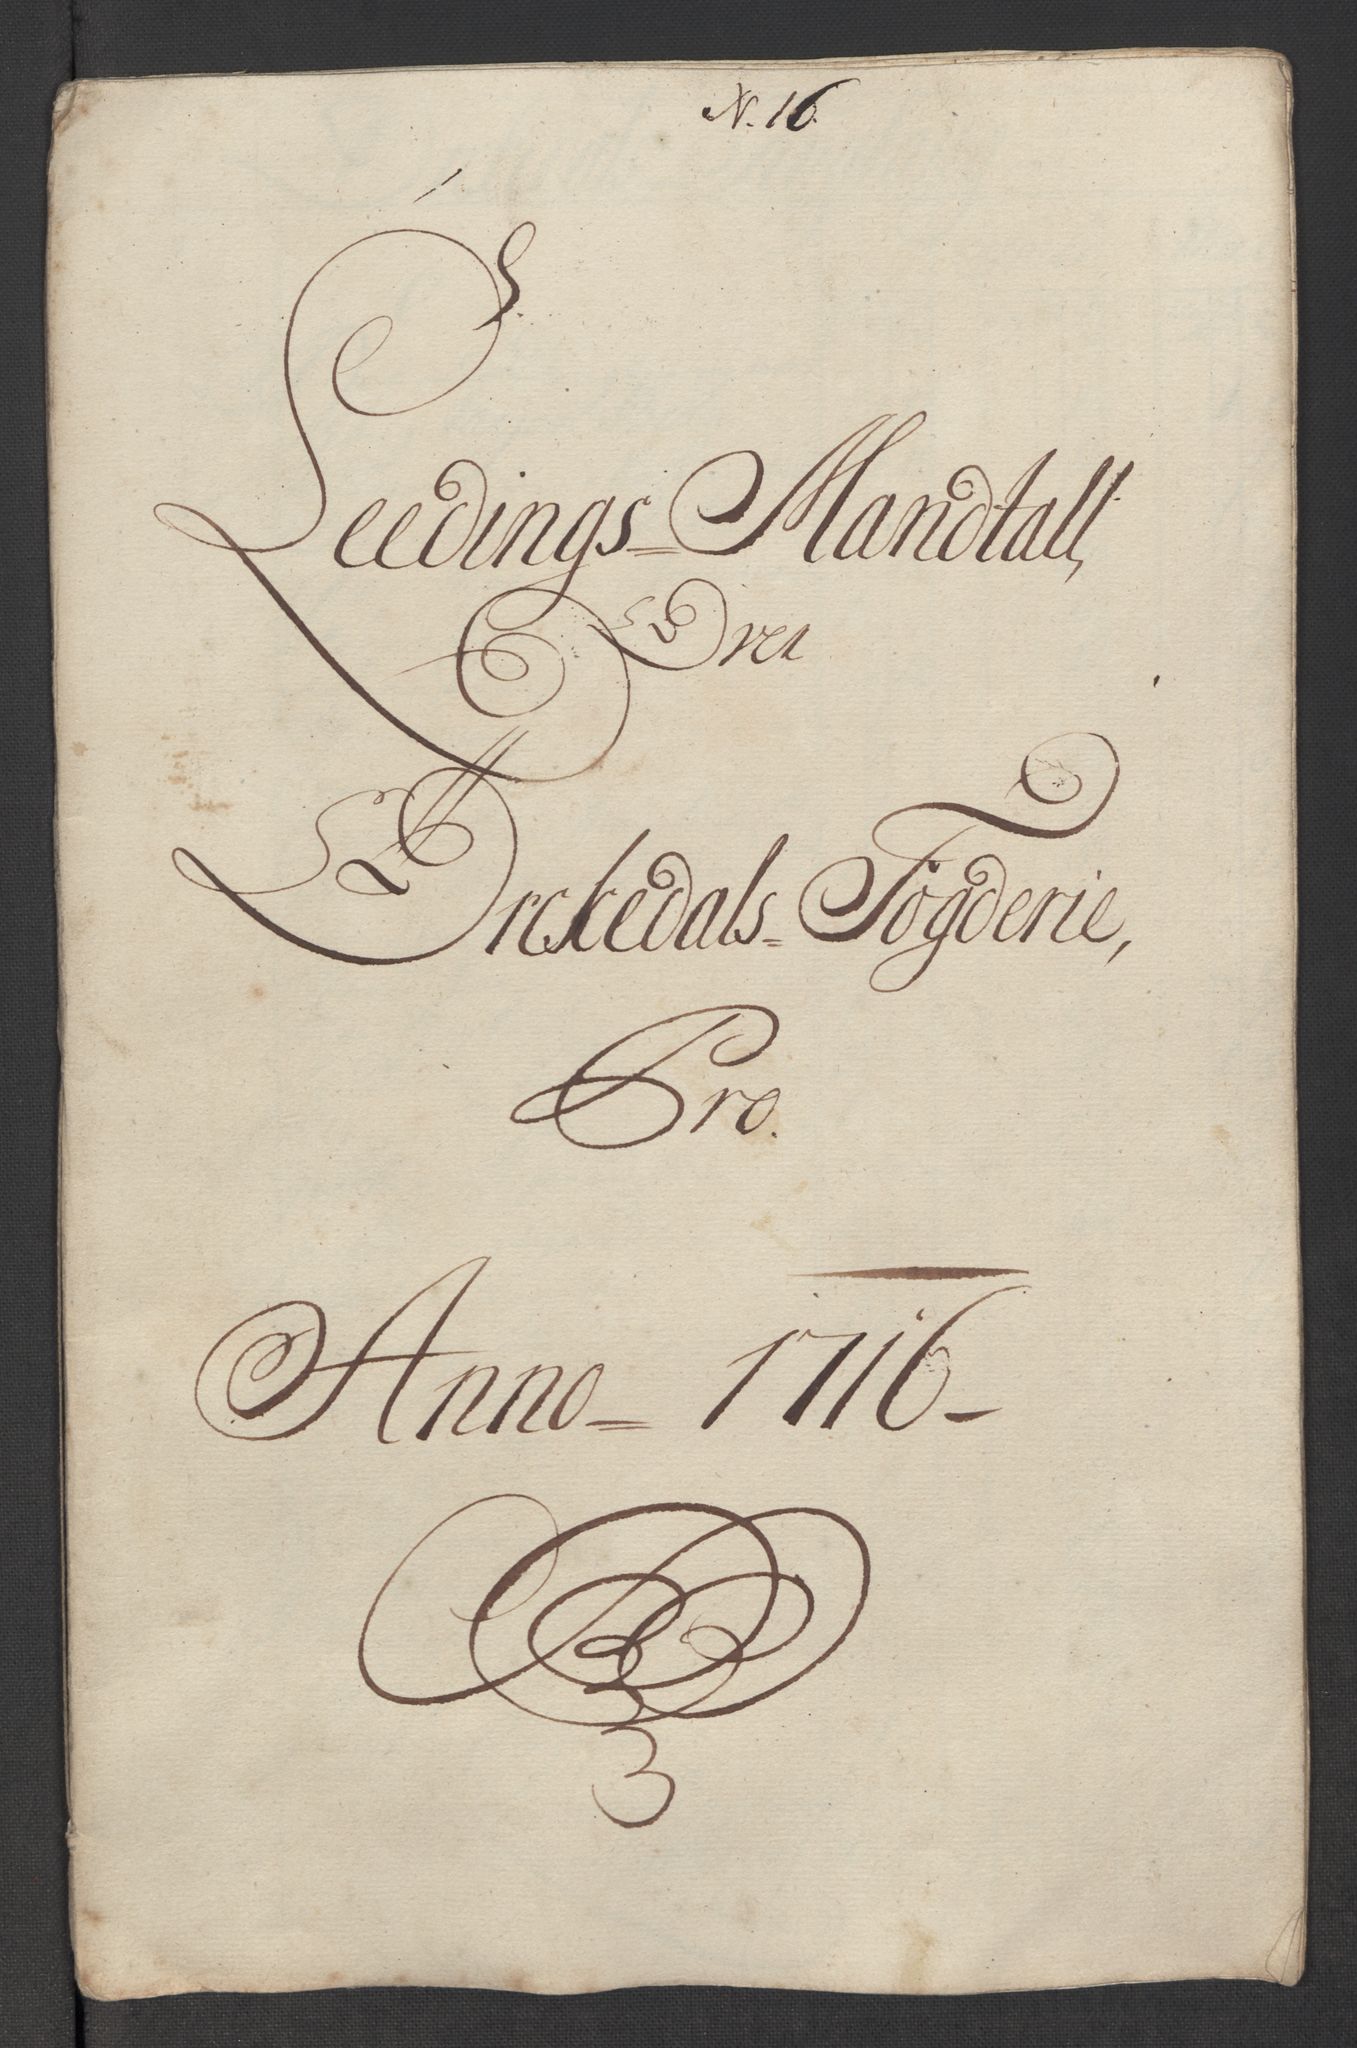 N. 16.
Leedings=Mandtall,
Over
Orckedals=Fogderie,
Pro.
Anno=1716-